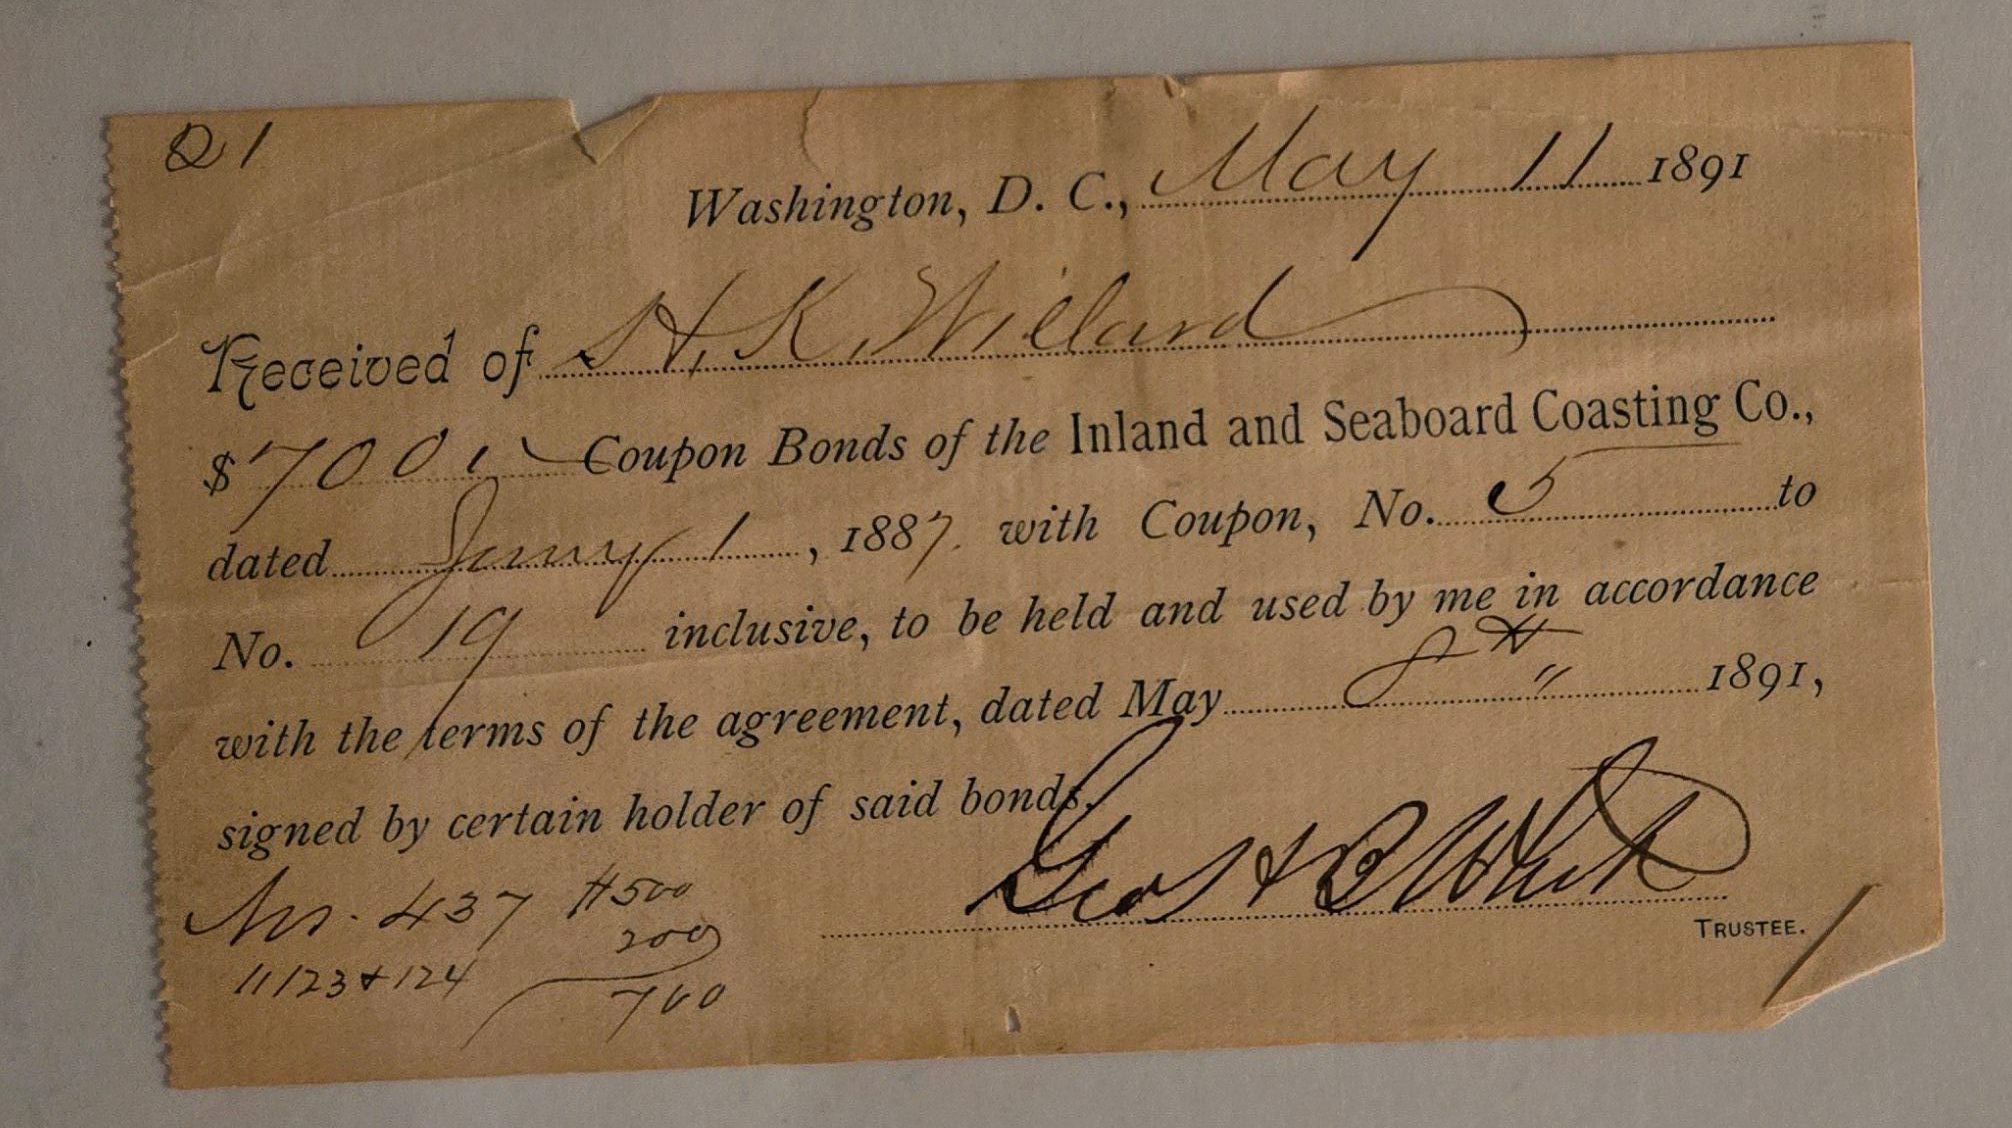 21
Washington, D. C., May 11 1891
Received of H. K. Willard
$700. Coupon Bonds of the Inland and Seaboard Coasting Co.,
dated Jany 1, 1887. with Coupon, No. 5 to
No. 19 inclusive, to be held and used by me in accordance
with the terms of the agreement, dated May 8th 1891,
signed by certain holder of said bonds.
Geo H B White
TRUSTEE.
Nos. 437 $500
" 123 & 124 200
700